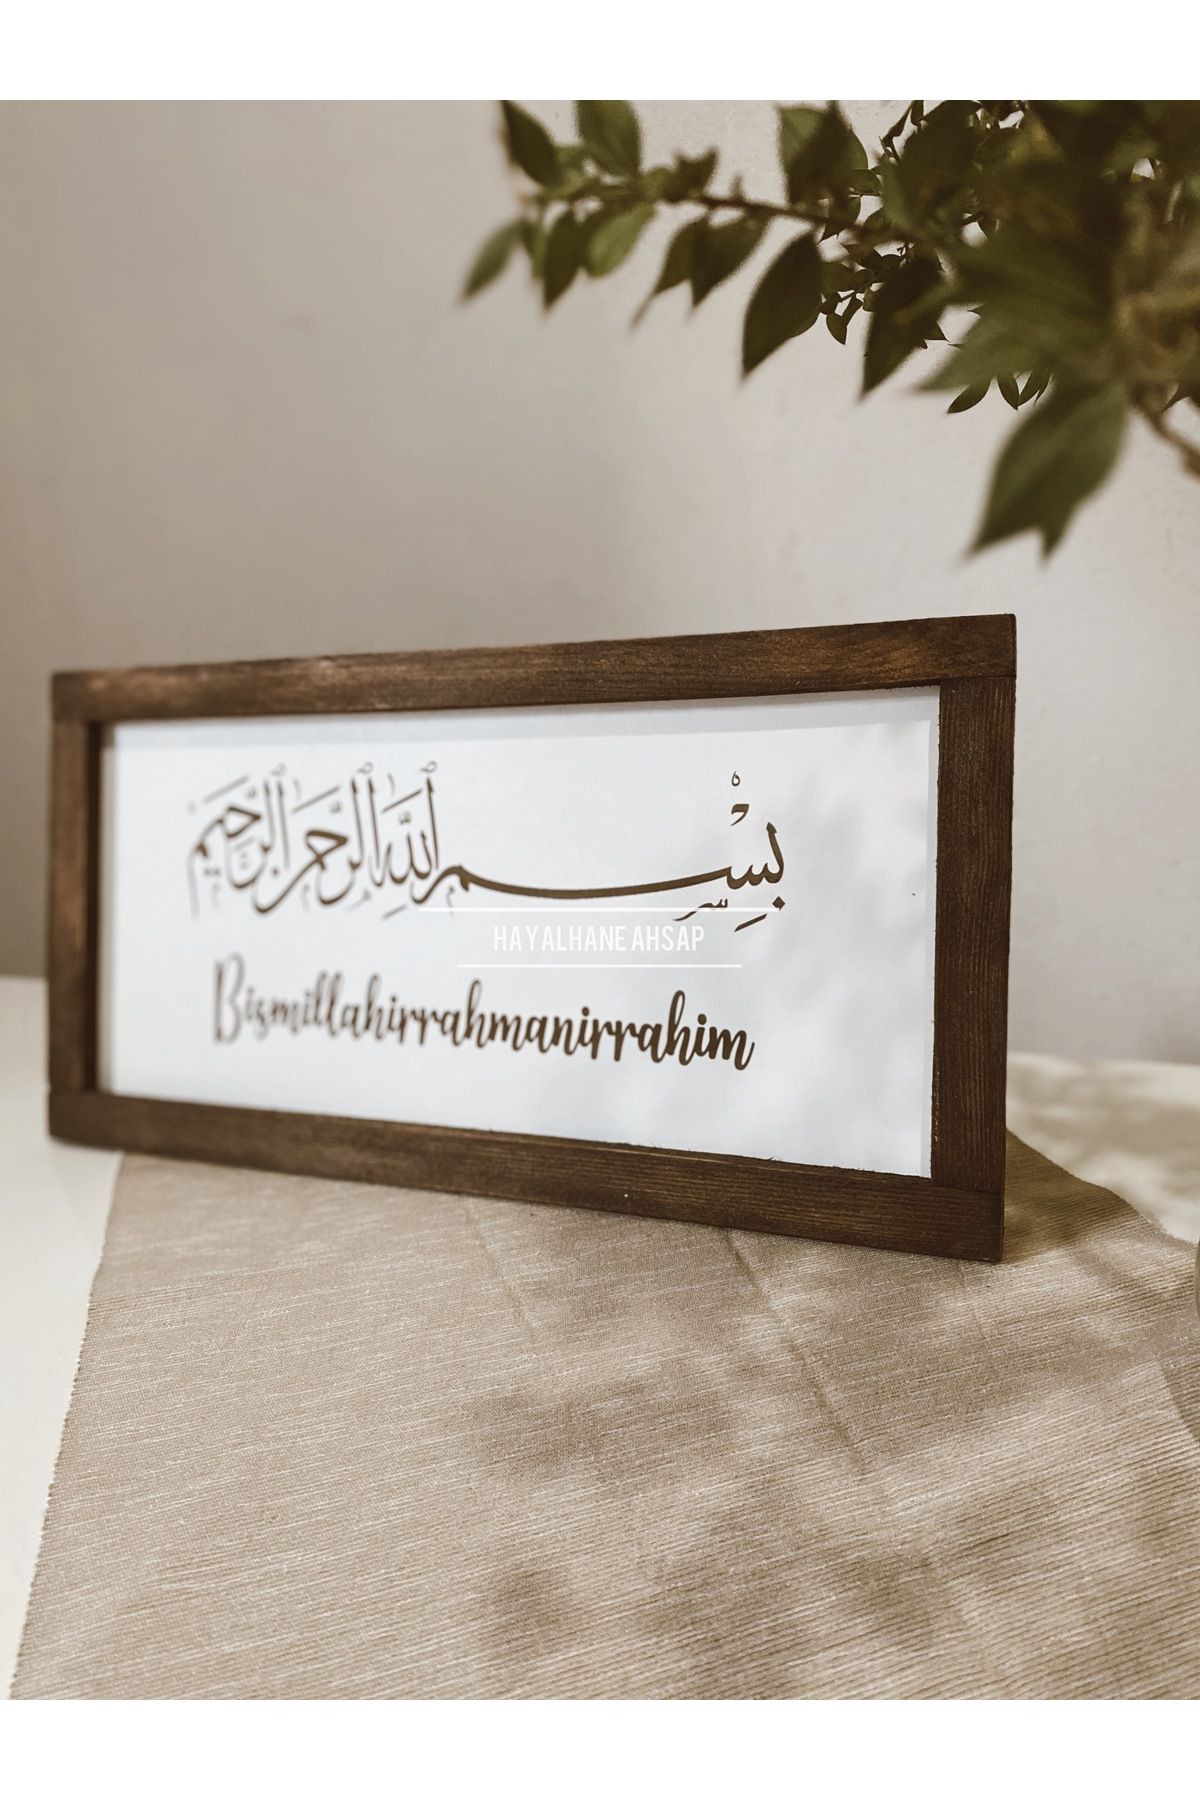 بِسْمِ اللَّهِ الرَّحْمَنِ الرَّحِيمِ
HAYALHANE AHSAP
Bismillahirrahmanirrahim